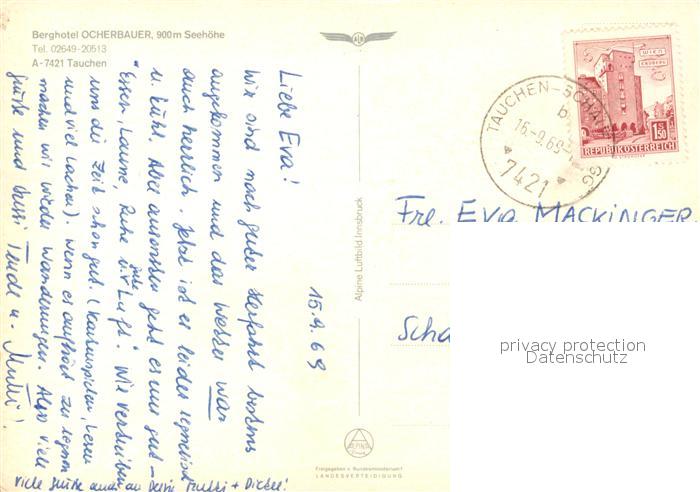 Berghotel OCHERBAUER, 900m Seehöhe
Tel. 02649-20513
A-7421 Tauchen
15.9.69
Liebe Eva!
Wir sind nach guter Herfahrt bestens
angekommen und das Wetter war
auch herrlich. Jetzt ist es leider regnerisch
u. kühl. Aber ansonsten geht es uns gut –
"Essen, Laune, Ruhe u. gute Luft". Wir vertreiben
uns die Zeit schon gut. (Kartenspielen, Lesen
und viel Lachen). Wenn es aufhört zu regnen
machen wir wieder Wanderungen. Also viele
Grüße und Bussi u. Mutti!
Viele Grüße auch an
Alpine Luftbild Innsbruck
ALPINE
Freigegeben v. Bundesministerium f.
LANDESVERTEIDIGUNG
TAUCHEN-SCHA
b
16.-9.69-
7421
WIEN
ERDBERG
1.50
S
REPUBLIK ÖSTERREICH
Frl. EVA MACKINGER
Scha
privacy protection
Datenschutz